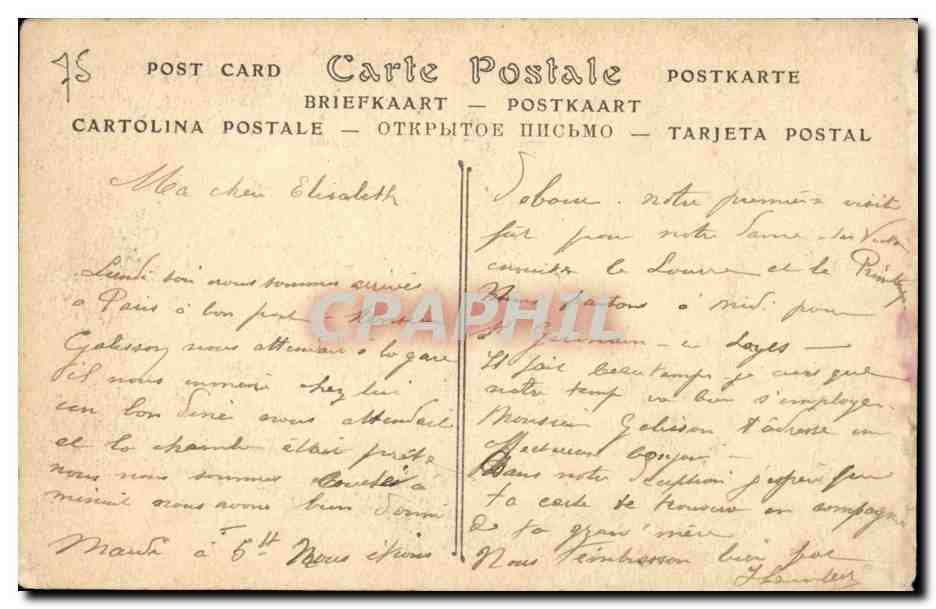 75
POST CARD Carte Postale POSTKARTE
BRIEFKAART — POSTKAART
CARTOLINA POSTALE — ОТКРЫТОЕ ПИСЬМО — TARJETA POSTAL
Ma cher Elisabeth
Lundi soir nous sommes arrivés
a Paris à bon port
Galisson nous attendait a la gare
il nous emmené chez lui
un bon diné nous attendait
et la chambre était prête
nous nous sommes couchés à
minuit nous avons bien dormi
Mardi à 6 H Nous étions
debout. notre première visit
fut pour notre Dame des Vict
ensuite le Louvre et le Printemps
Nous partons à midi pour
St Germain - en Layes —
Il fait beau temps je crois que
notre temp va bien s'employer
Monsieur Galisson t'adresse un
affectueux bonjour
Dans notre
ta carte de en compagnie
de ta grand'mère
Nous t'embrasson bien
CPAPHIL